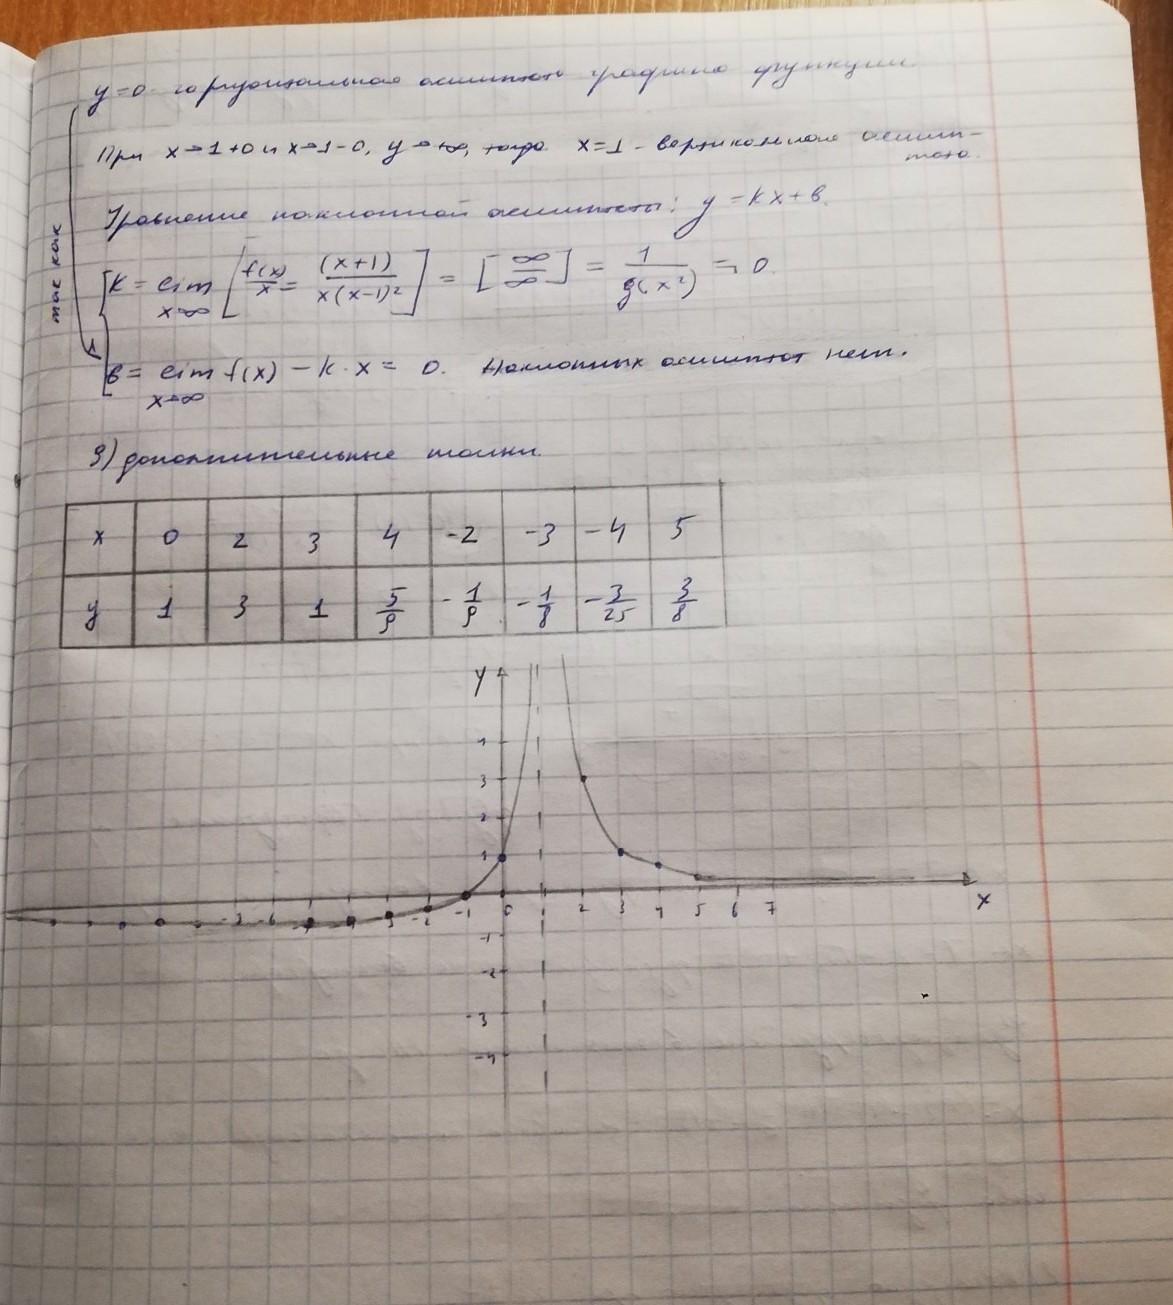 y=0 горизонтальная асимптота графика функции.
При x→1+0 и x→1-0, y→+∞, тогда x=1 - вертикальная асимп-
тота.
Уравнение наклонной асимптоты: y=kx+b.
так как
k = lim x→∞ [f(x)/x = (x+1)/(x(x-1)²)] = [∞/∞] = 1/g(x²) → 0
b = lim x→∞ f(x) - k·x = 0. Наклонных асимптот нет.
9) дополнительные точки.
x 0 2 3 4 -2 -3 -4 5
y 1 3 1 5/9 -1/9 -1/8 -3/25 3/8
y
4
3
2
1
-2 -1 0 1 2 3 4 5 6 7 x
-1
-2
-3
-4